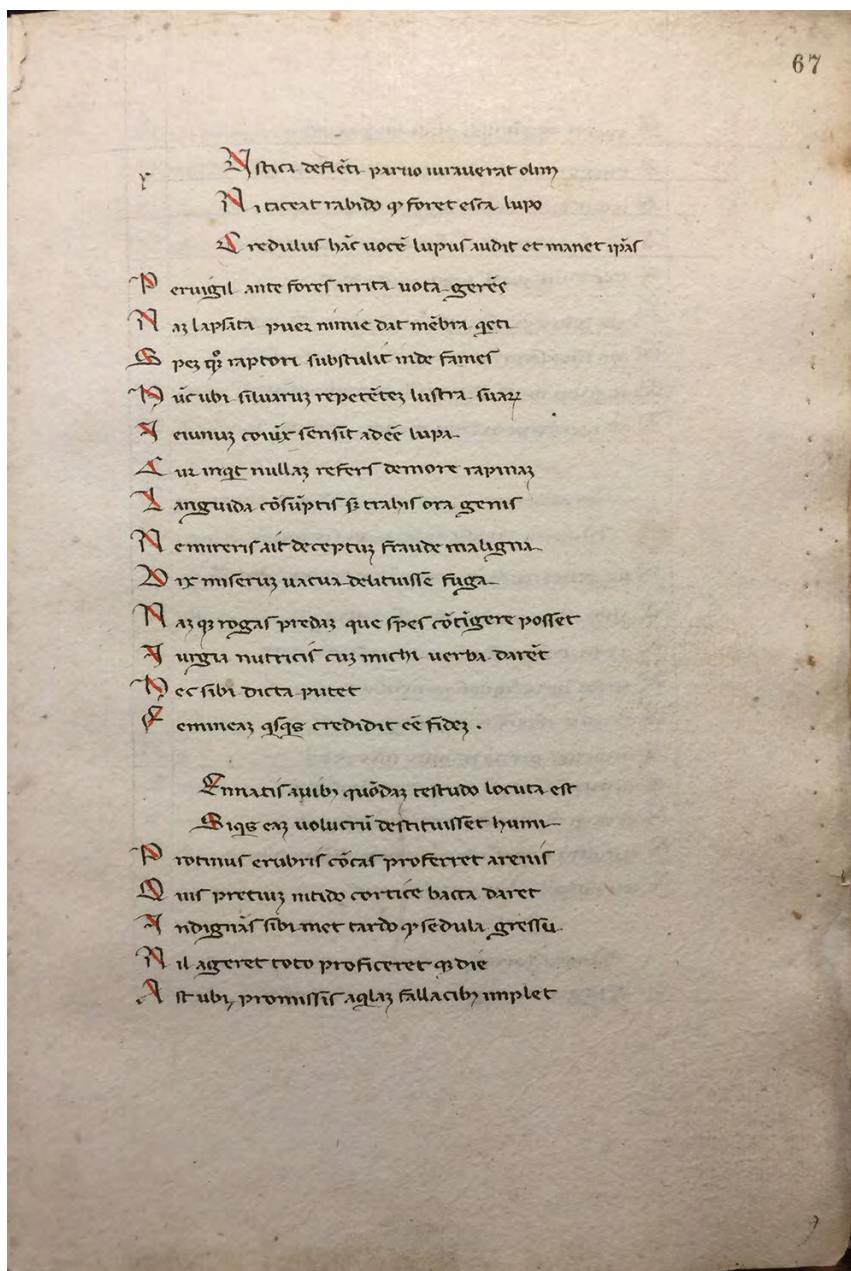 67
r Nstica deflẽti paruo iuraverat olim
Ni taceat rabido qꝫ foret esca lupo
Credulus hãc uocẽ lupus audit et manet ip̃as
Pervigil ante fores irrita vota gerẽs
Naꝫ lapsata pueꝛ nimie dat mẽbra q̃eti
Speꝫ raptori substulit inde fames
Nũc ubi silvaruꝫ repetẽteꝫ lustra suaꝝ
Ieiunuꝫ coniũx sensit adẽe lupa
Cuꝛ inqͥt nullaꝫ refers demore rapinaꝫ
Languida cõsũptis sꝫ trahis ora genis
Ne mireris ait deceptuꝫ fraude maligna
Vix miseruꝫ uacua delituisse fuga
Naꝫ qꝫ rogas predaꝫ que spes cõtĩgere posset
Iurgia nutricis cuꝫ michi verba darẽt
Nec sibi dicta putet
Femineaꝫ qͥsqͥs credidit eẽ fideꝫ .
Pinnatis avibꝫ quõdaꝫ testudo locuta est
Siqͥs eaꝫ uolucrũ destituisset humi
Protinus erubris cõcas proferret arenis
Quis pretiuꝫ nitido cortice bacca daret
Indignãs sibi met tardo qꝫ sedula gressu
Nil ageret toto proficeret qꝫ die
Ast ubi promissis aq̃laꝫ fallacibꝫ implet